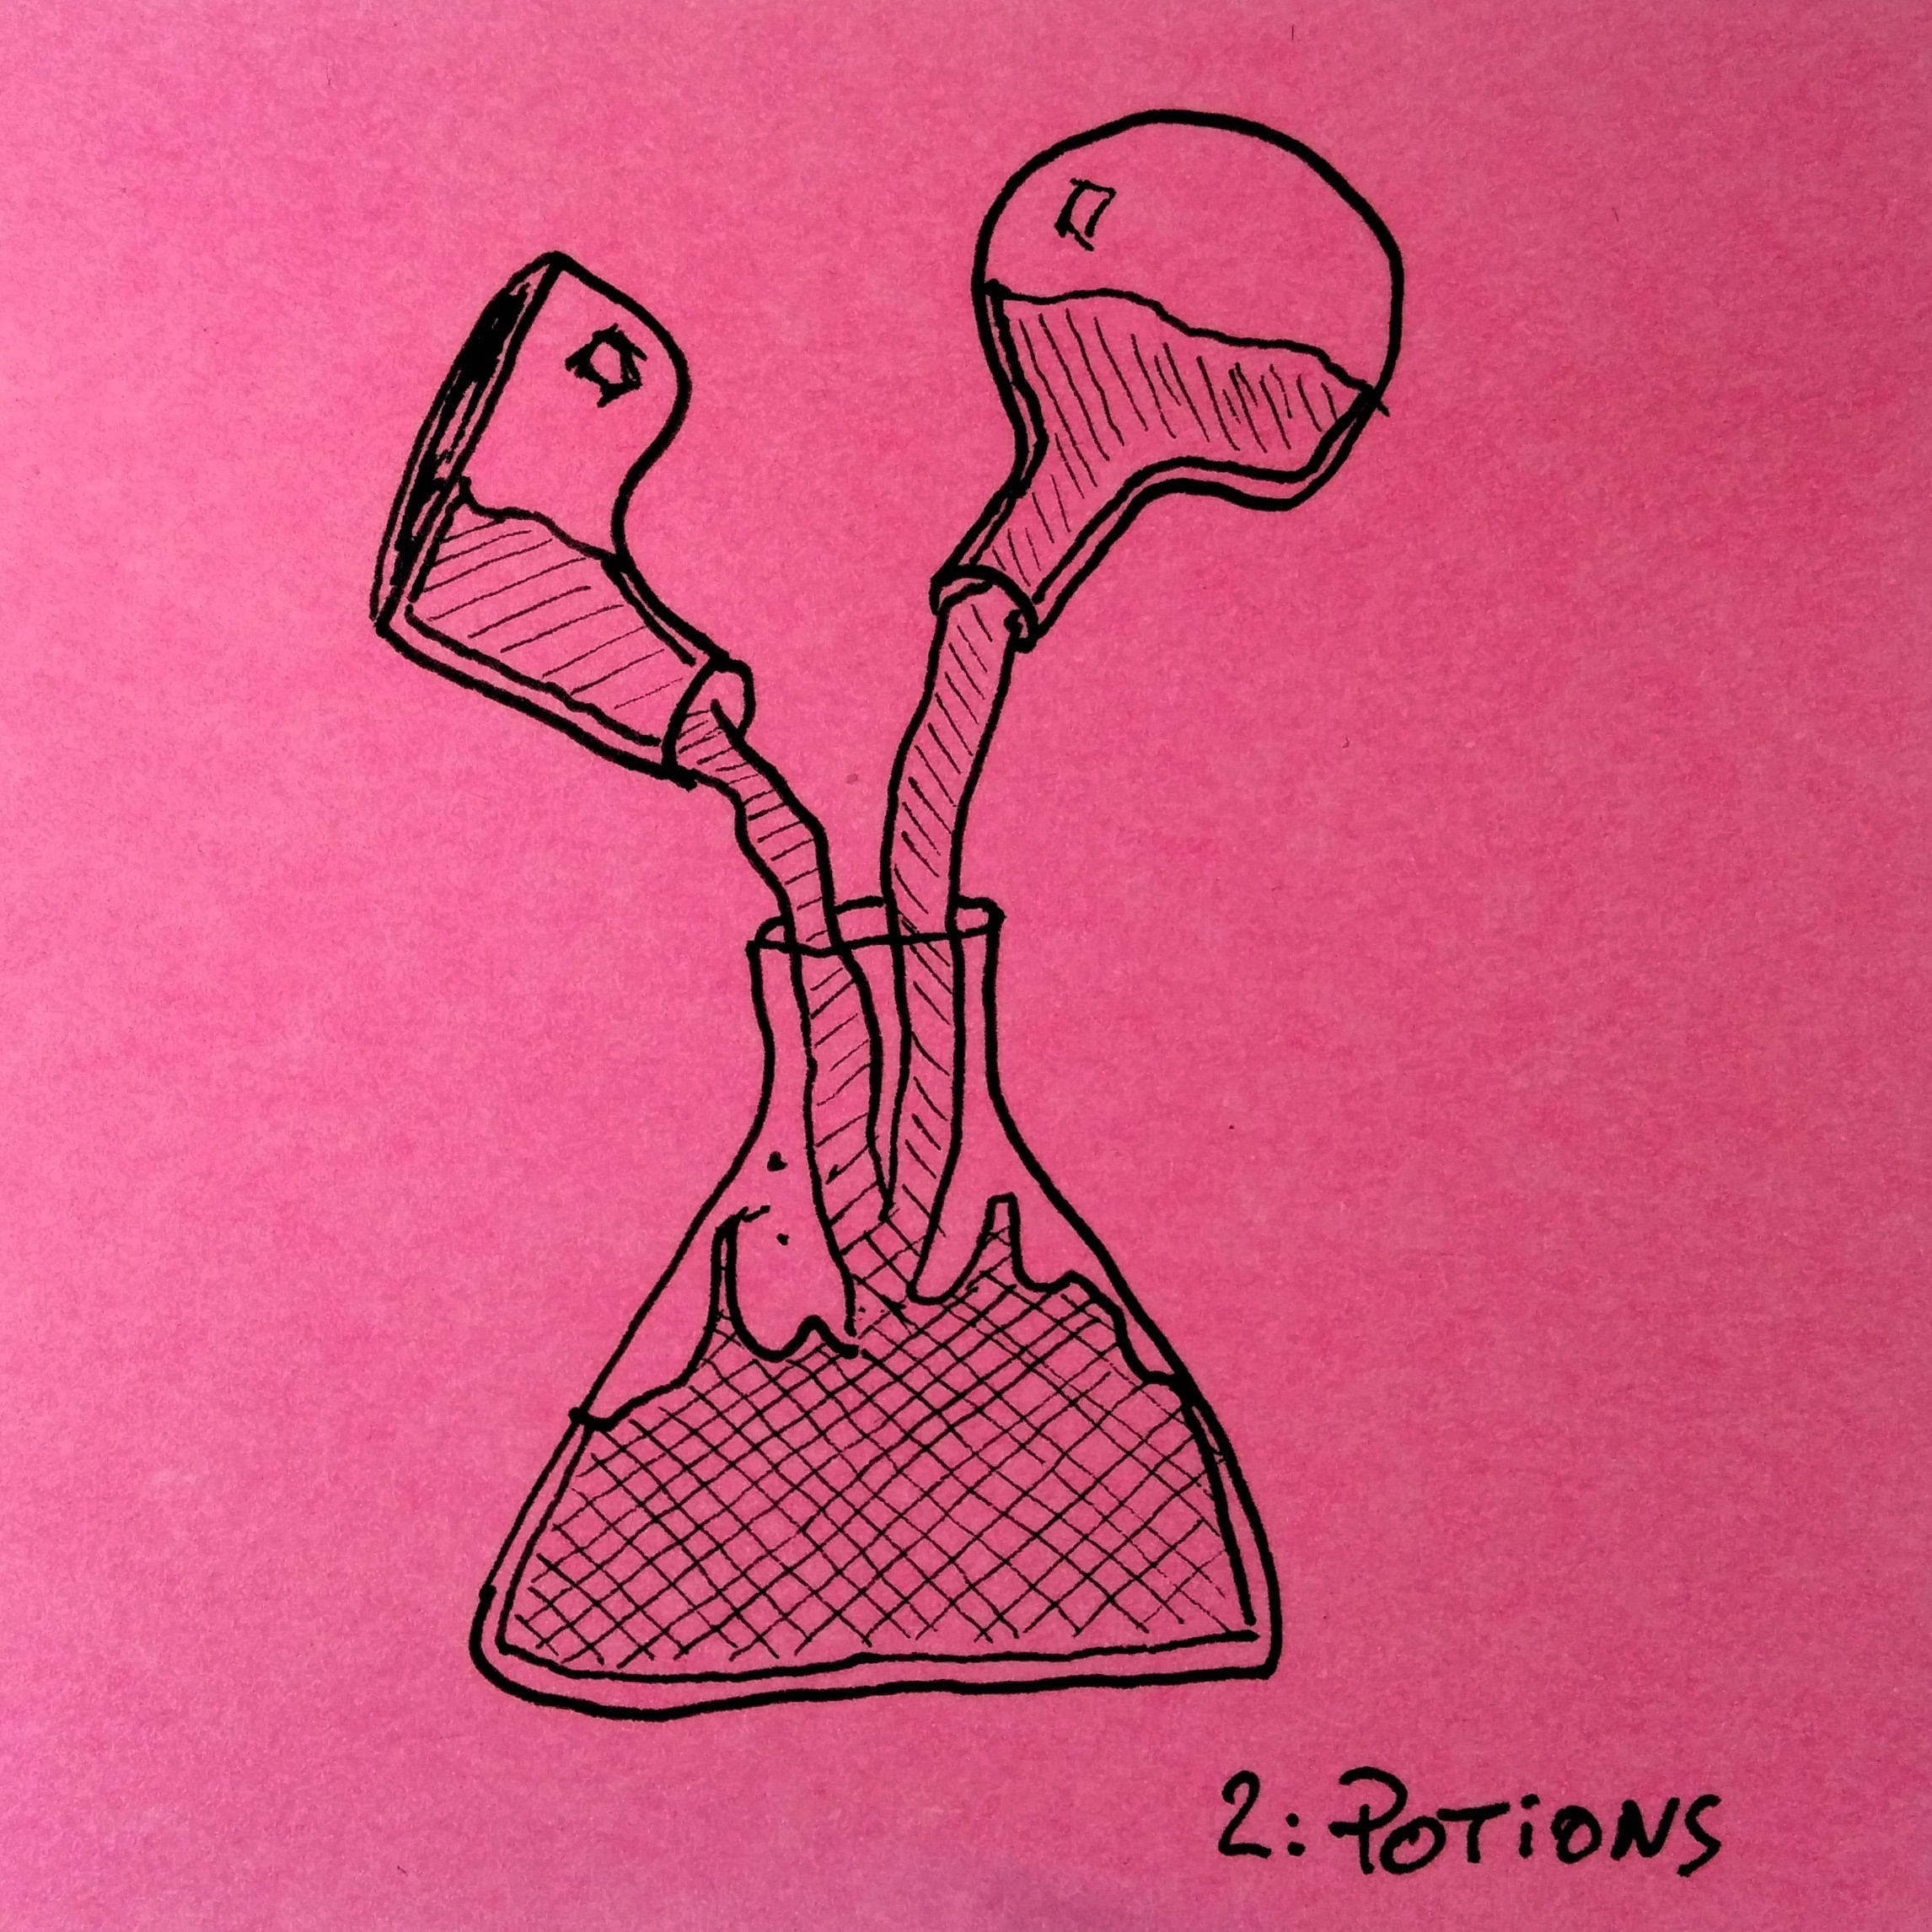 2: POTiONS